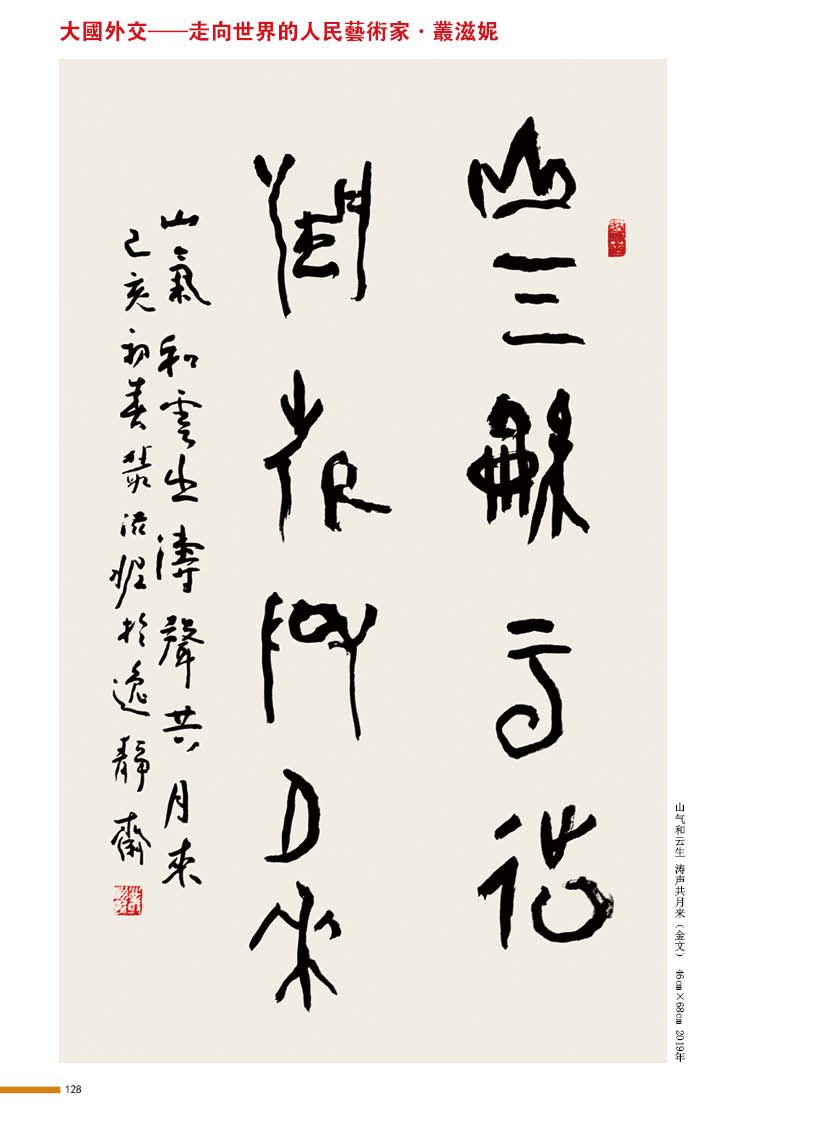 大國外交——走向世界的人民藝術家·叢滋妮
山气龢云
月來
山氣和雲生濤聲共月来
己亥初春叢滋妮於逸靜齋
山气和云生 涛声共月来（金文） 46㎝×68㎝ 2019年
128